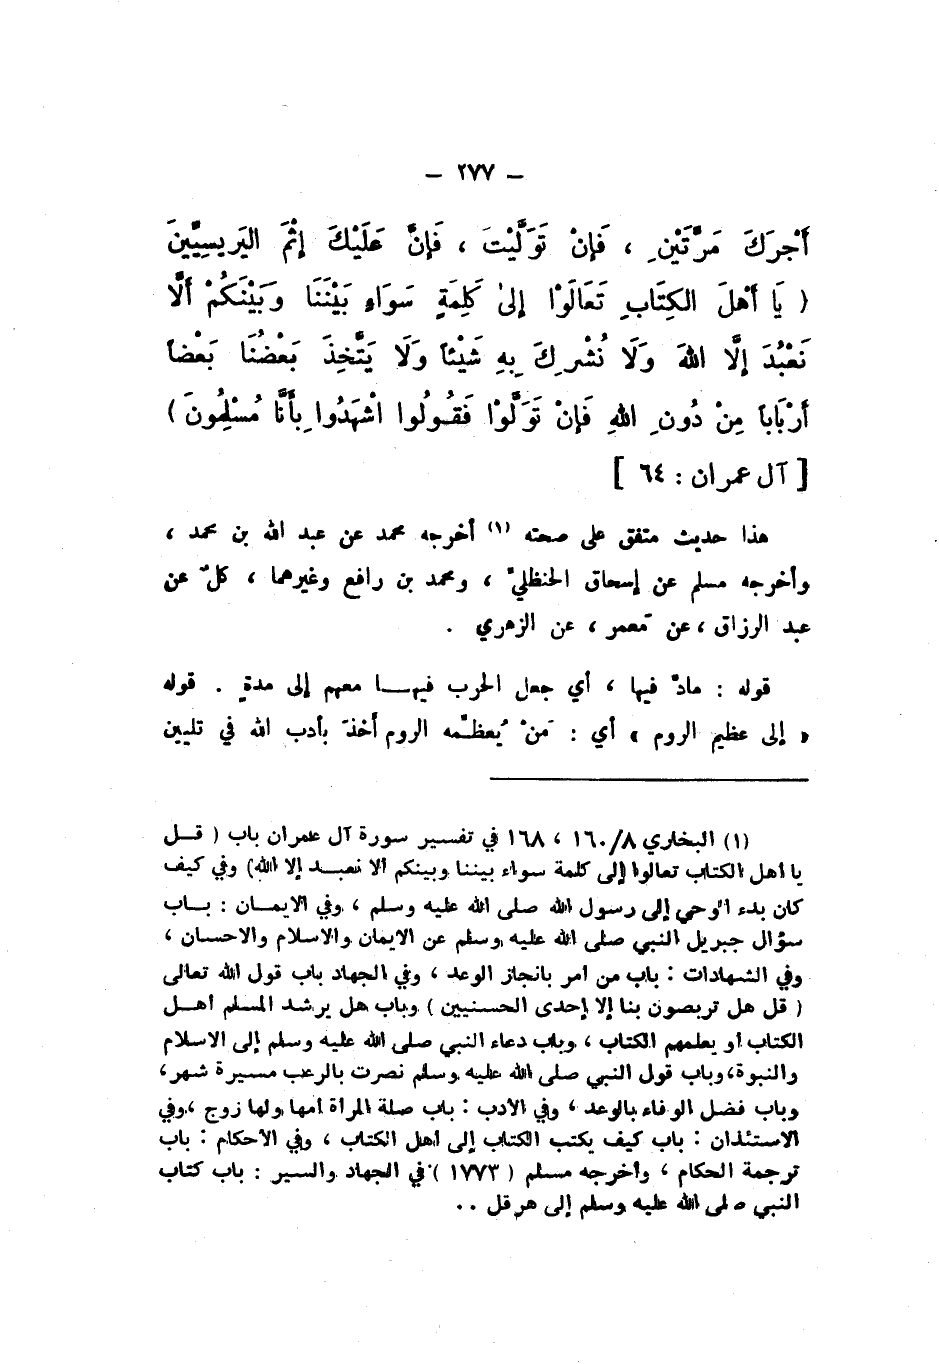 - ٢٧٧ -
أَجْرَكَ مَرَّتَيْنِ ، فَإِنْ تَوَلَّيْتَ ، فَإِنَّ عَلَيْكَ إِثْمَ اليَرِيسِيِّينَ
( يَا أَهْلَ الكِتَابِ تَعَالَوْا إِلىٰ كَلِمَةٍ سَوَاءٍ بَيْنَنَا وَبَيْنَكُمْ أَلَّا
نَعْبُدَ إِلَّا اللهَ وَلَا نُشْرِكَ بِهِ شَيْئاً وَلَا يَتَّخِذَ بَعْضُنَا بَعْضاً
أَرْبَاباً مِنْ دُونِ اللهِ فَإِنْ تَوَلَّوْا فَقُولُوا اشْهَدُوا بِأَنَّا مُسْلِمُونَ )
[ آل عمران : ٦٤ ]
هذا حديث متفق على صحته (١) أخرجه محمد عن عبد الله بن محمد ،
وأخرجه مسلم عن إسحاق الحنظليّ ، ومحمد بن رافع وغيرهما ، كلٌ عن
عبد الرزاق ، عن مَعمر ، عن الزهري .
قوله : مادّ فيها ، أي جعل الحرب فيهـا معهم إلى مدةٍ . قوله
« إلى عظيم الروم » أي : مَنْ يُعظّمه الروم أَخذَ بأدب الله في تليين
(١) البخاري ١٦٠/٨ ، ١٦٨ في تفسير سورة آل عمران باب ( قـل
يا أهل الكتاب تعالوا إلى كلمة سواء بيننا وبينكم ألا نعبـد إلا الله) وفي كيف
كان بدء الوحي إلى رسول الله صلى الله عليه وسلم ، وفي الايمـان : بـاب
سؤال جبريل النبي صلى الله عليه وسلم عن الايمان والاسلام والاحسان ،
وفي الشهادات : باب من أمر بانجاز الوعد ، وفي الجهاد باب قول الله تعالى
( قل هل تربصون بنا إلا إحدى الحسنيين ) وباب هل يرشد المسلم أهـل
الكتاب أو يعلمهم الكتاب ، وباب دعاء النبي صلى الله عليه وسلم إلى الاسلام
والنبوة، وباب قول النبي صلى الله عليه وسلم نصرت بالرعب مسيرة شهر،
وباب فضل الوفاء بالوعد ، وفي الأدب : باب صلة المرأة أمها ولها زوج ، وفي
الاستئذان : باب كيف يكتب الكتاب إلى أهل الكتاب ، وفي الأحكام : باب
ترجمة الحكام ، وأخرجه مسلم ( ١٧٧٣ ) في الجهاد والسير : باب كتاب
النبي صلى الله عليه وسلم إلى هرقل ..